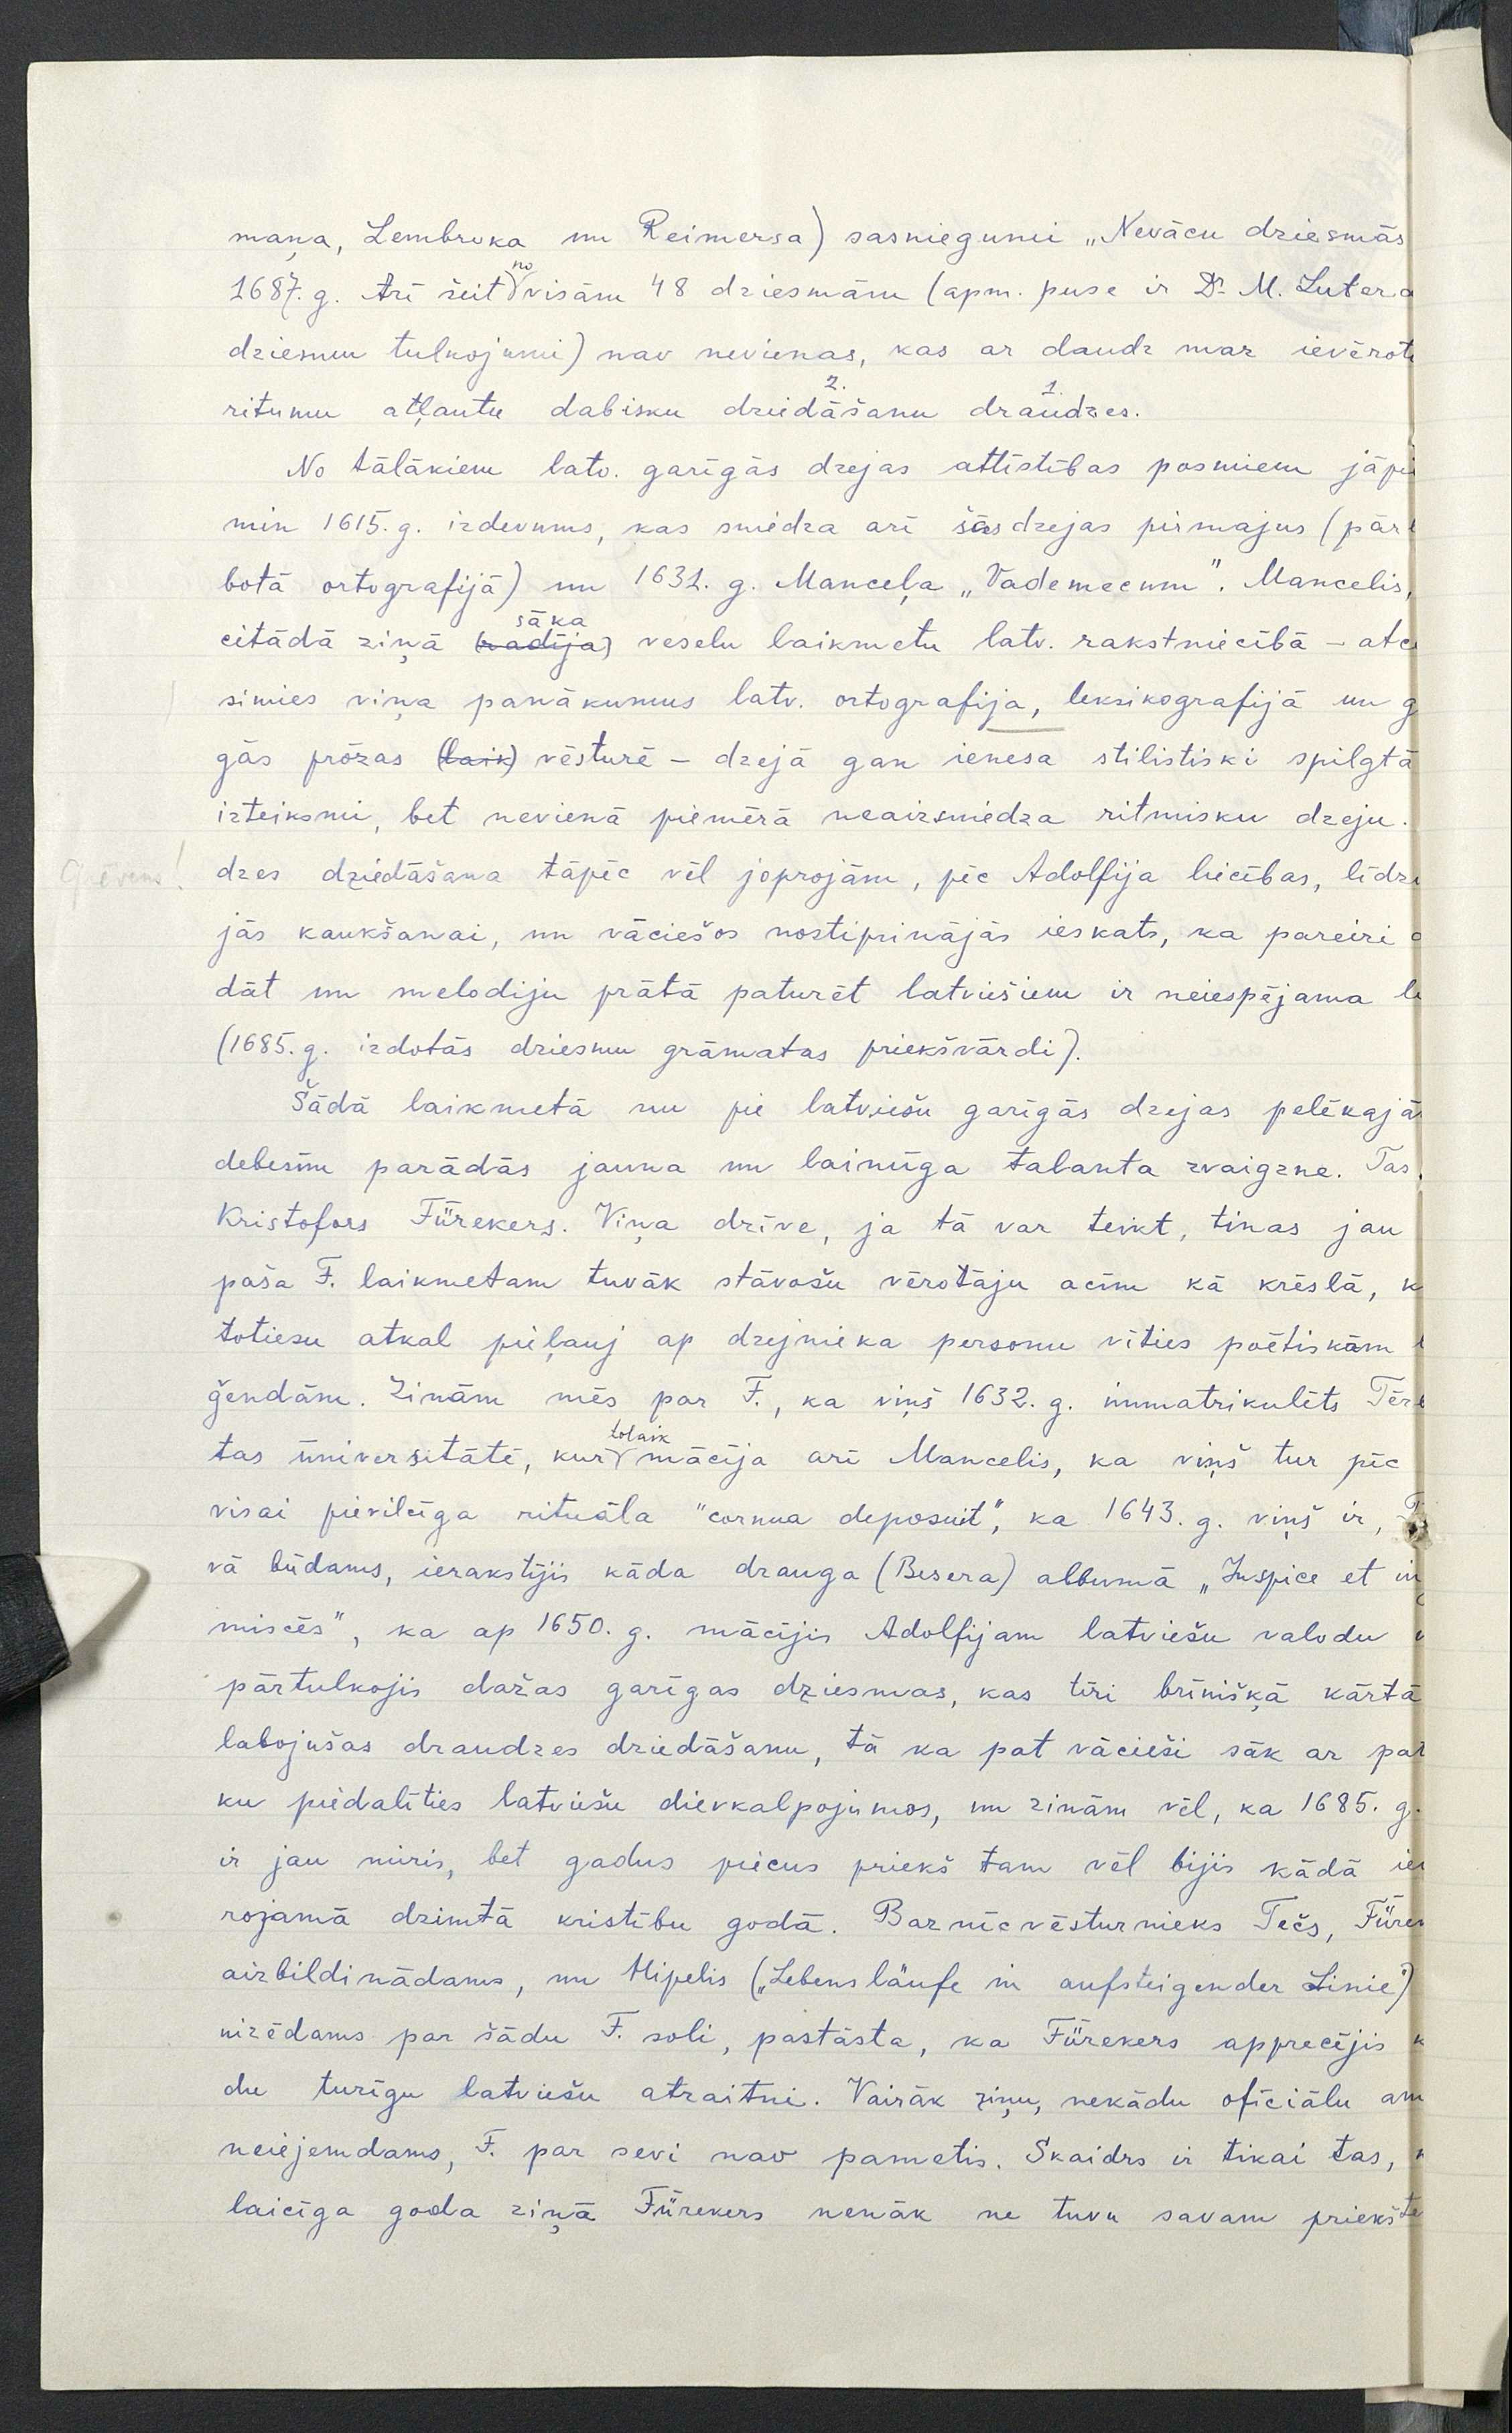 maņa, Lembruka un Reimersa) sasniegumi „Nevācu dziesmās
1687. g. Arī šeit no visām 48 dziesmām (apm. puse ir Dr. M. Lutera
dziesmu tulkojumi) nav nevienas, kas ar daudz maz ievērot
ritumu atļautu dabisku dziedāšanu 2. draudzes. 1.
No tālākiem latv. garīgās dzejas attīstības posmiem jāpie
min 1615. g. izdevums, kas sniedza arī šās dzejas pirmajus (pār
botā ortografijā) un 1631. g. Manceļa „Vademecum". Mancelis,
citādā ziņā (radīja) sāka veselu laikmetu latv. rakstniecībā – atc
simies viņa panākumus latv. ortografija, leksikografijā un g
gās prōzas (laik) vēsturē – dzejā gan ienesa stilistiski spilgtā
izteiksmi, bet nevienā piemērā neaizsniedza ritmisku dzeju.
dzes dziedāšana tāpēc vēl joprojām, pēc Adolfija liecības, līdzi
jās kaukšanai, un vāciešos nostiprinājās ieskats, ka pareizi
dāt un melodiju prātā paturēt latviešiem ir neiespējama l
(1685. g. izdotās dziesmu grāmatas priekšvārdi).
Šādā laikmetā nu pie latviešu garīgās dzejas pelēkajās
debesīm parādās jauna un laimīga talanta zvaigzne. Tas
Kristofors Fürekers. Viņa dzīve, ja tā var teikt, tinas jau
paša F. laikmetam tuvāk stāvošu vērotāju acīm kā krēslā, k
totiesu atkal pieļauj ap dzejnieka personu vīties poētiskām
ģendām. Zinām mēs par F., ka viņš 1632. g. immatrikulēts Tēr
tas ūniversitātē, kur tolaik mācīja arī Mancelis, ka viņš tur pēc
visai pievilcīga rituāla "cornua deposuit", ka 1643. g. viņš ir,
vā būdams, ierakstījis kāda drauga (Besera) albumā „Inspice et in
miscēs", ka ap 1650. g. mācījis Adolfijam latviešu valodu
pārtulkojis dažas garīgas dziesmas, kas tīri brīnišķā kārtā
labojušas draudzes dziedāšanu, tā ka pat vācieši sāk ar pat
ku piedalīties latviešu dievkalpojumos, un zinām vēl, ka 1685. g.
ir jau miris, bet gadus piecus priekš tam vēl bijis kādā iev
rojamā dzimtā kristību godā. Baznīcvēsturnieks Tečs, Fürek
aizbildinādams, un Hipelis („Lebensläufe in aufsteigender Linie")
nizēdams par šādu F. soli, pastāsta, ka Fürekers apprecējis k
du turīgu latviešu atraitni. Vairāk ziņu, nekādu oficiālu am
neieņemdams, F. par sevi nav pametis. Skaidrs ir tikai tas,
laicīga goda ziņā Fürekers nenāk ne tuvu savam priekšte